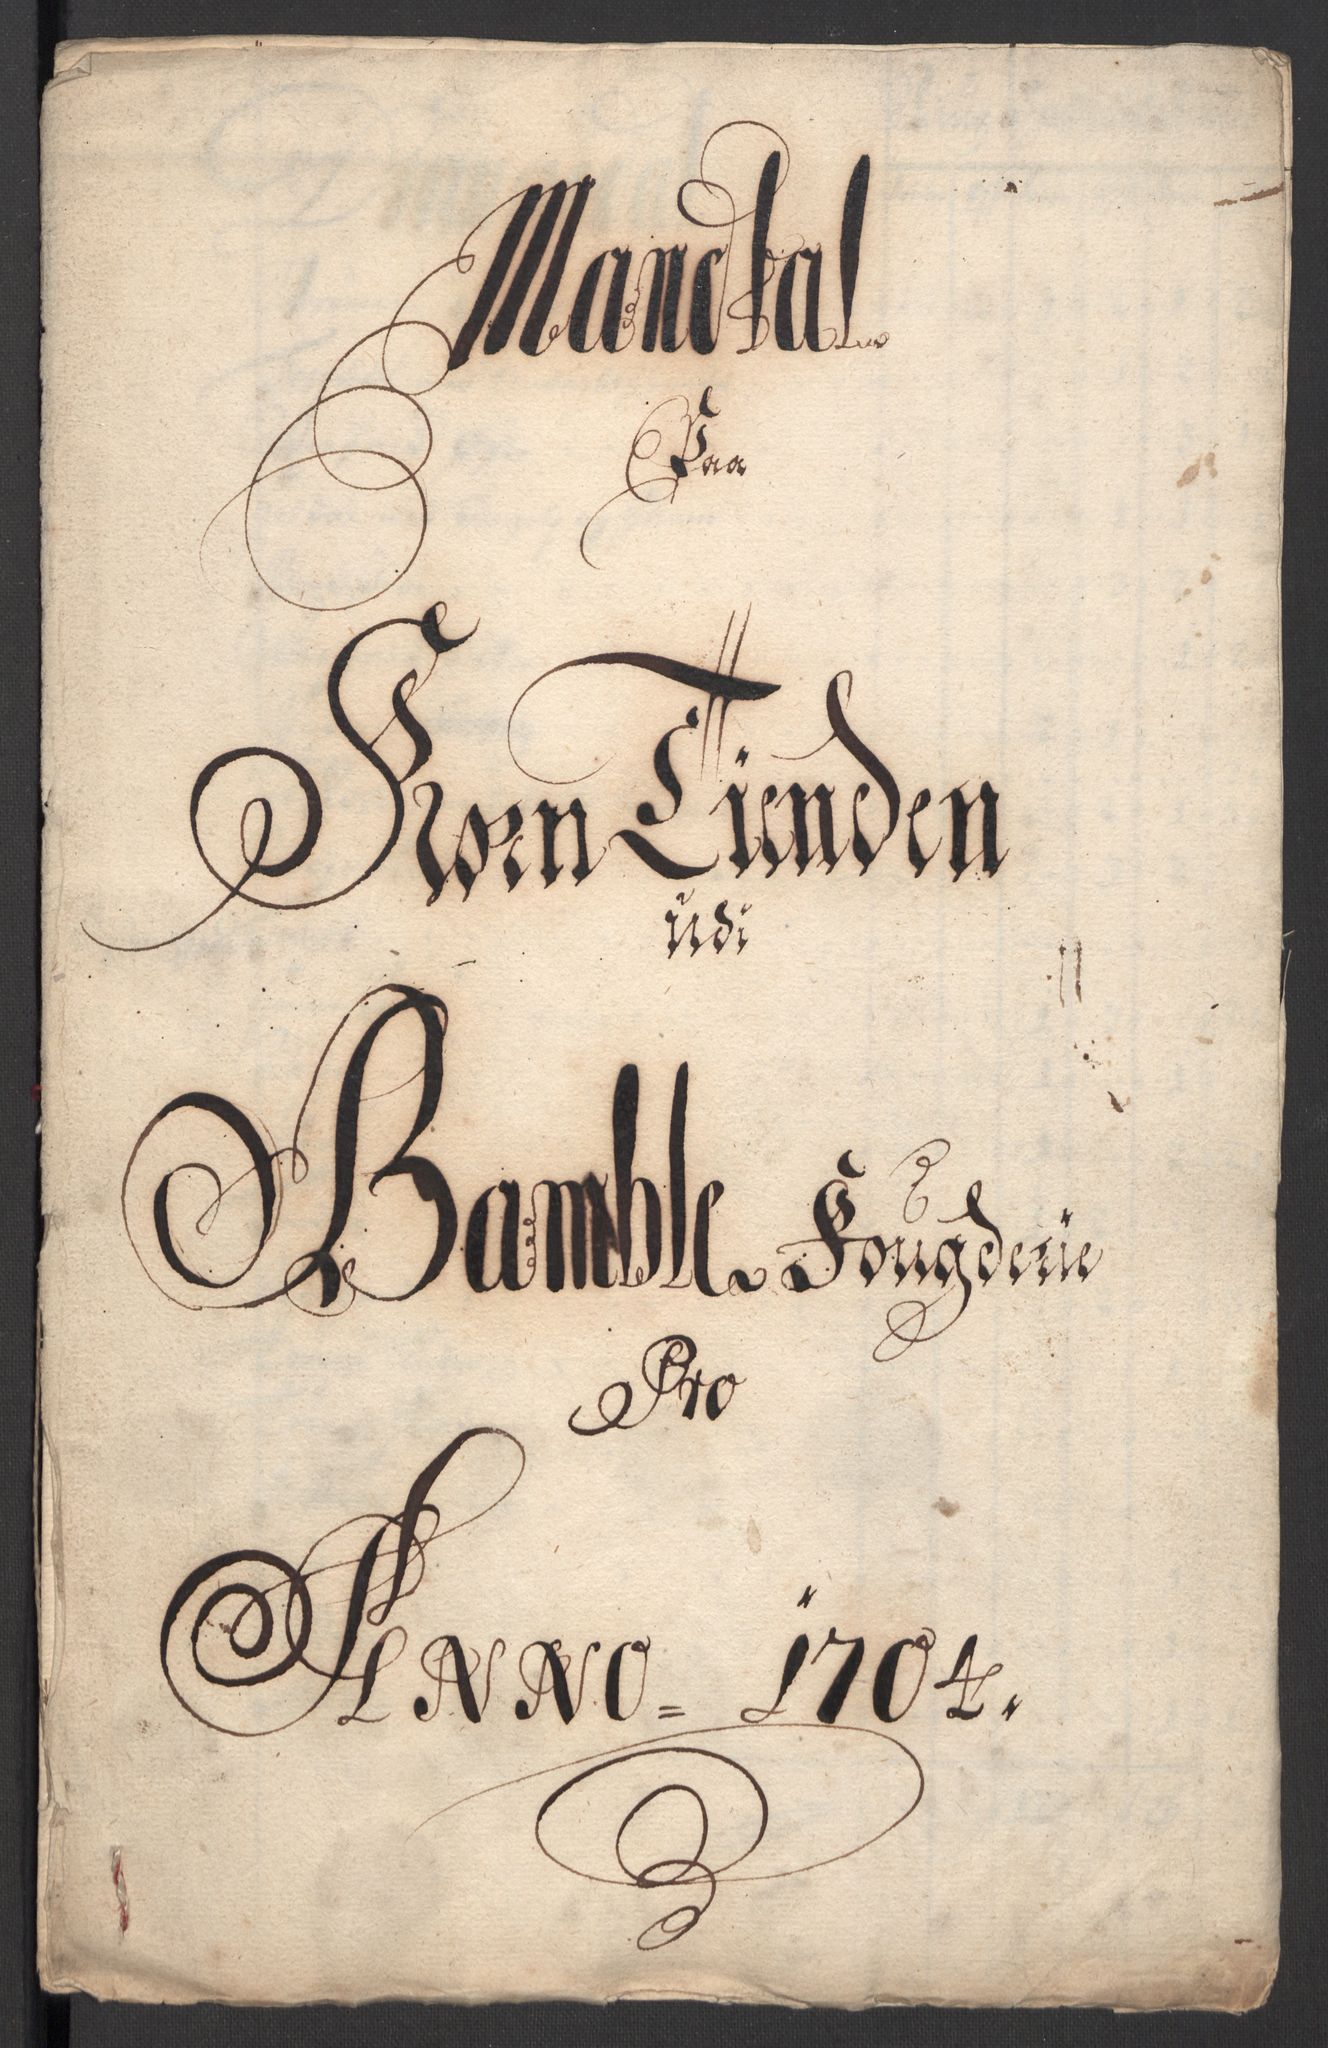 Mandtal
Paa
Korn Tienden
udi
Bamble Fougderie
Pro
ANNO = 1704.